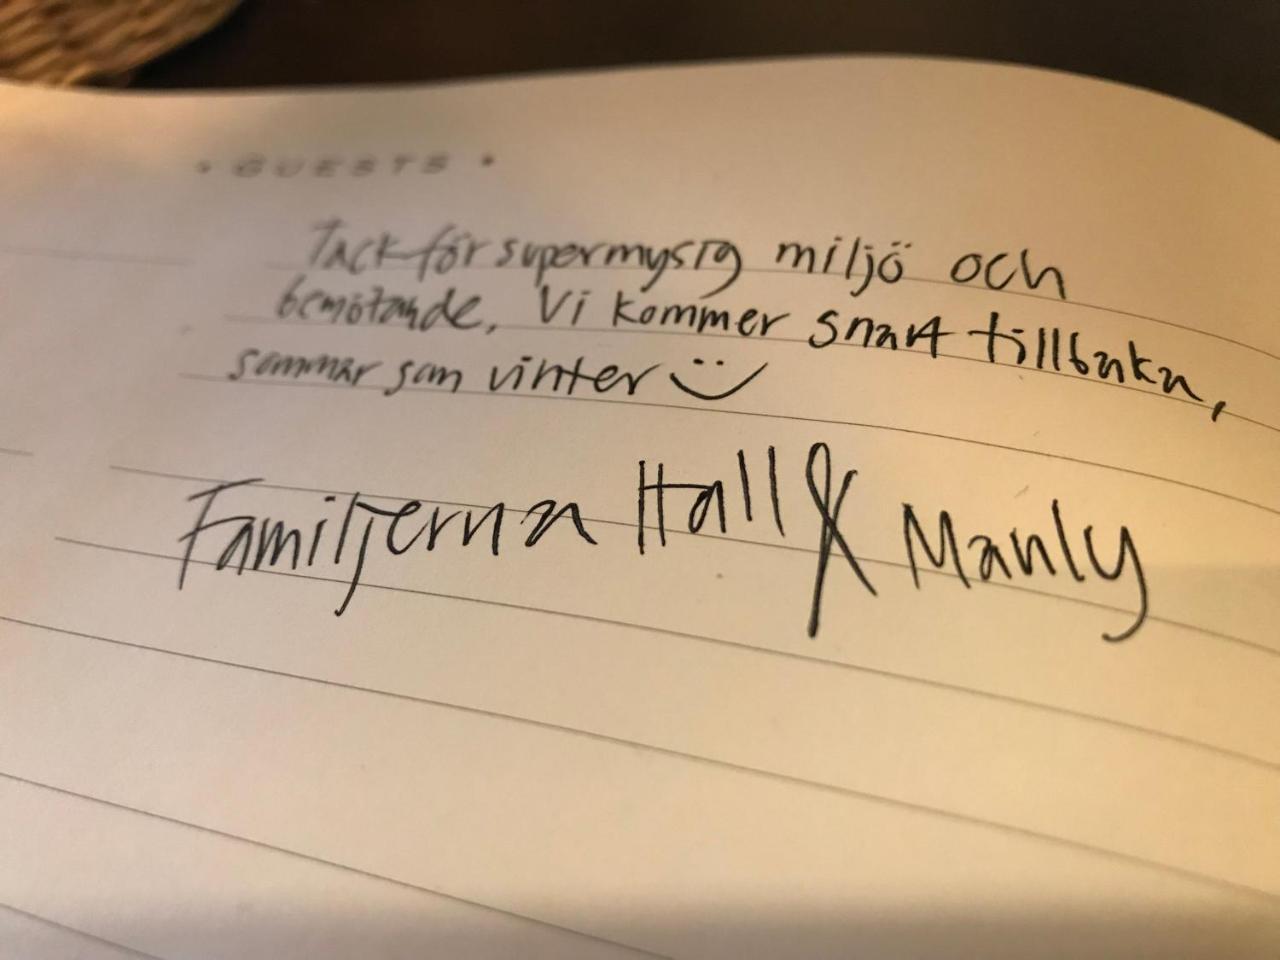 • GUESTS •
Tack för supermysig miljö och
bemötande, Vi kommer snart tillbaka,
sommar som vinter ¨)
Familjerna Hall & Manly